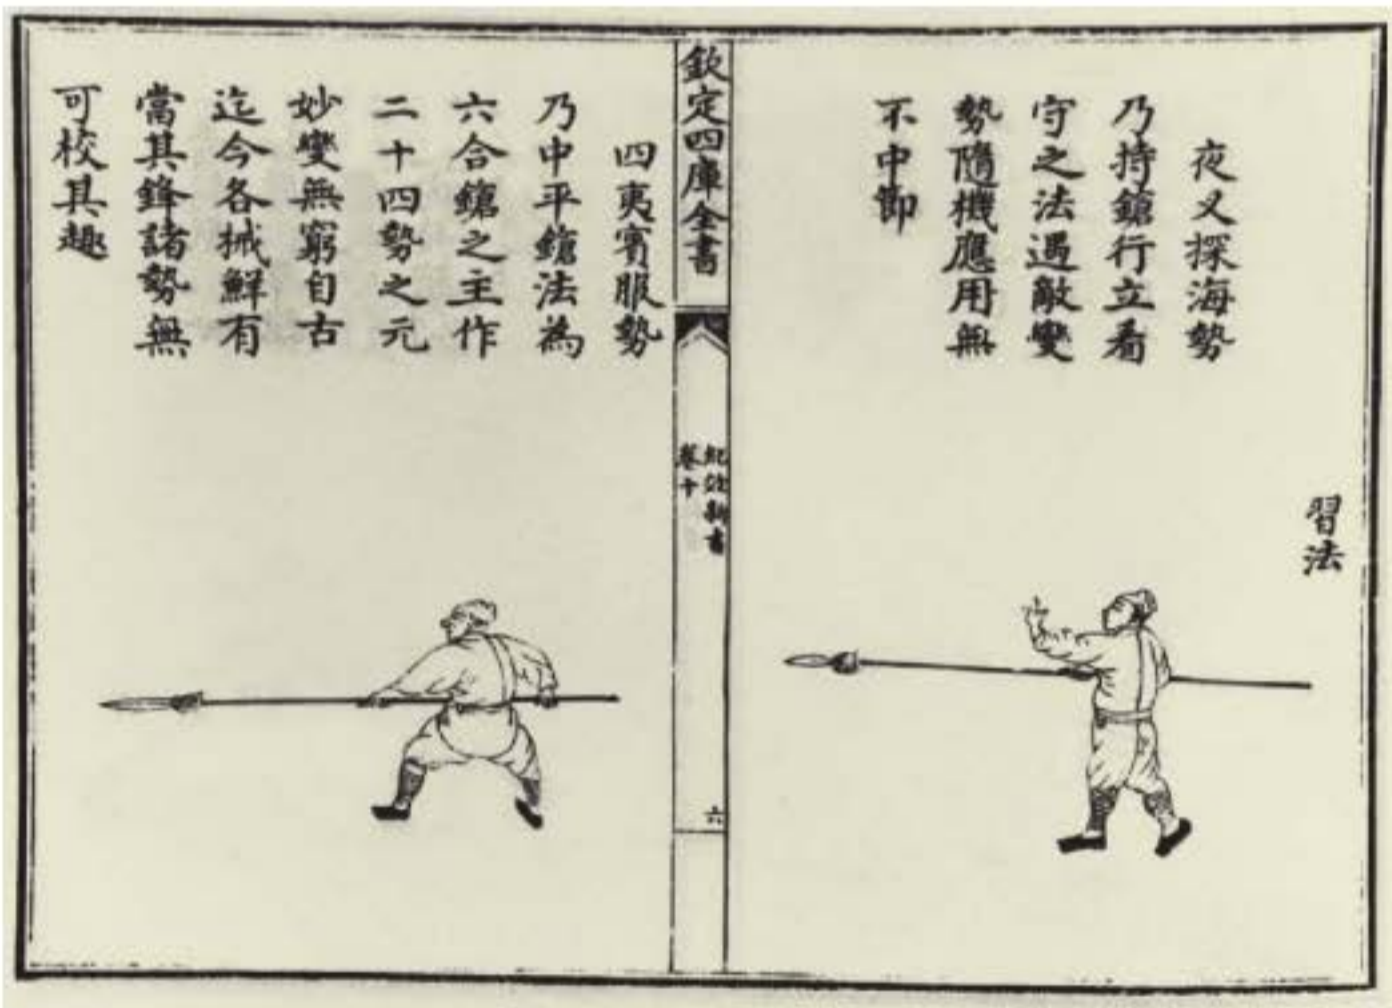 習法
夜叉探海勢
乃持鎗行立看
守之法遇敵變
勢隨機應用無
不中節
欽定四庫全書
紀效新書
卷十
六
四夷賓服勢
乃中平鎗法為
六合鎗之主作
二十四勢之元
妙變無窮自古
迄今各械鮮有
當其鋒諸勢無
可校其趣